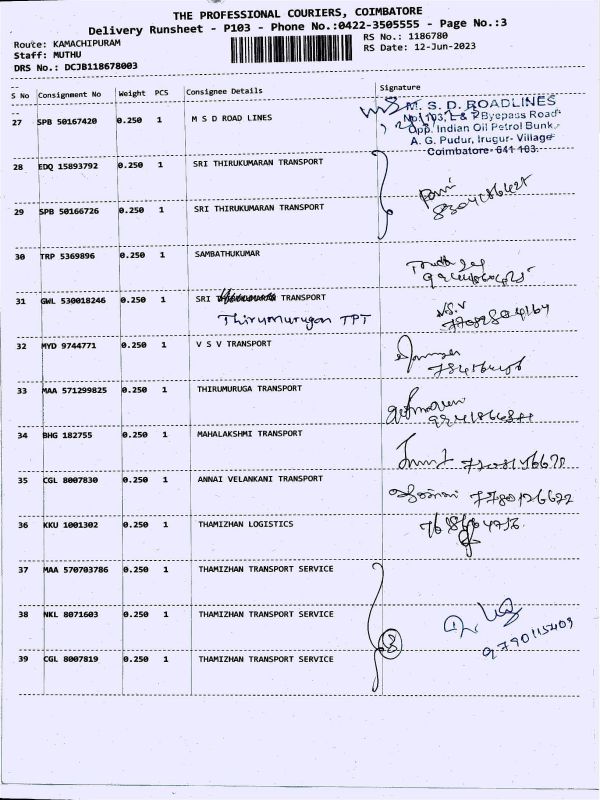 THE PROFESSIONAL COURIERS, COIMBATORE
Delivery Runsheet - P103 - Phone No.:0422-3505555 - Page No.:3
Route: KAMACHIPURAM
RS No.: 1186780
Staff: MUTHU
RS Date: 12-Jun-2023
DRS No.: DCJB118678003
S No Consignment No Weight PCS Consignee Details Signature
27 SPB 50167420 0.250 1 M S D ROAD LINES
M. S. D. ROADLINES
No. 193, L & T Byepass Road
Opp. Indian Oil Petrol Bunk
A. G. Pudur, Irugur- Village
Coimbatore- 641 103.
28 EDQ 15893792 0.250 1 SRI THIRUKUMARAN TRANSPORT
29 SPB 50166726 0.250 1 SRI THIRUKUMARAN TRANSPORT
30 TRP 5369896 0.250 1 SAMBATHUKUMAR
31 GWL 530018246 0.250 1 SRI TRANSPORT
Thirumurugan TPT
32 MYD 9744771 0.250 1 V S V TRANSPORT
33 MAA 571299825 0.250 1 THIRUMURUGA TRANSPORT
34 BHG 182755 0.250 1 MAHALAKSHMI TRANSPORT
35 CGL 8007830 0.250 1 ANNAI VELANKANI TRANSPORT
36 KKU 1001302 0.250 1 THAMIZHAN LOGISTICS
37 MAA 570703786 0.250 1 THAMIZHAN TRANSPORT SERVICE
38 NKL 8071603 0.250 1 THAMIZHAN TRANSPORT SERVICE
9790115409
39 CGL 8007819 0.250 1 THAMIZHAN TRANSPORT SERVICE